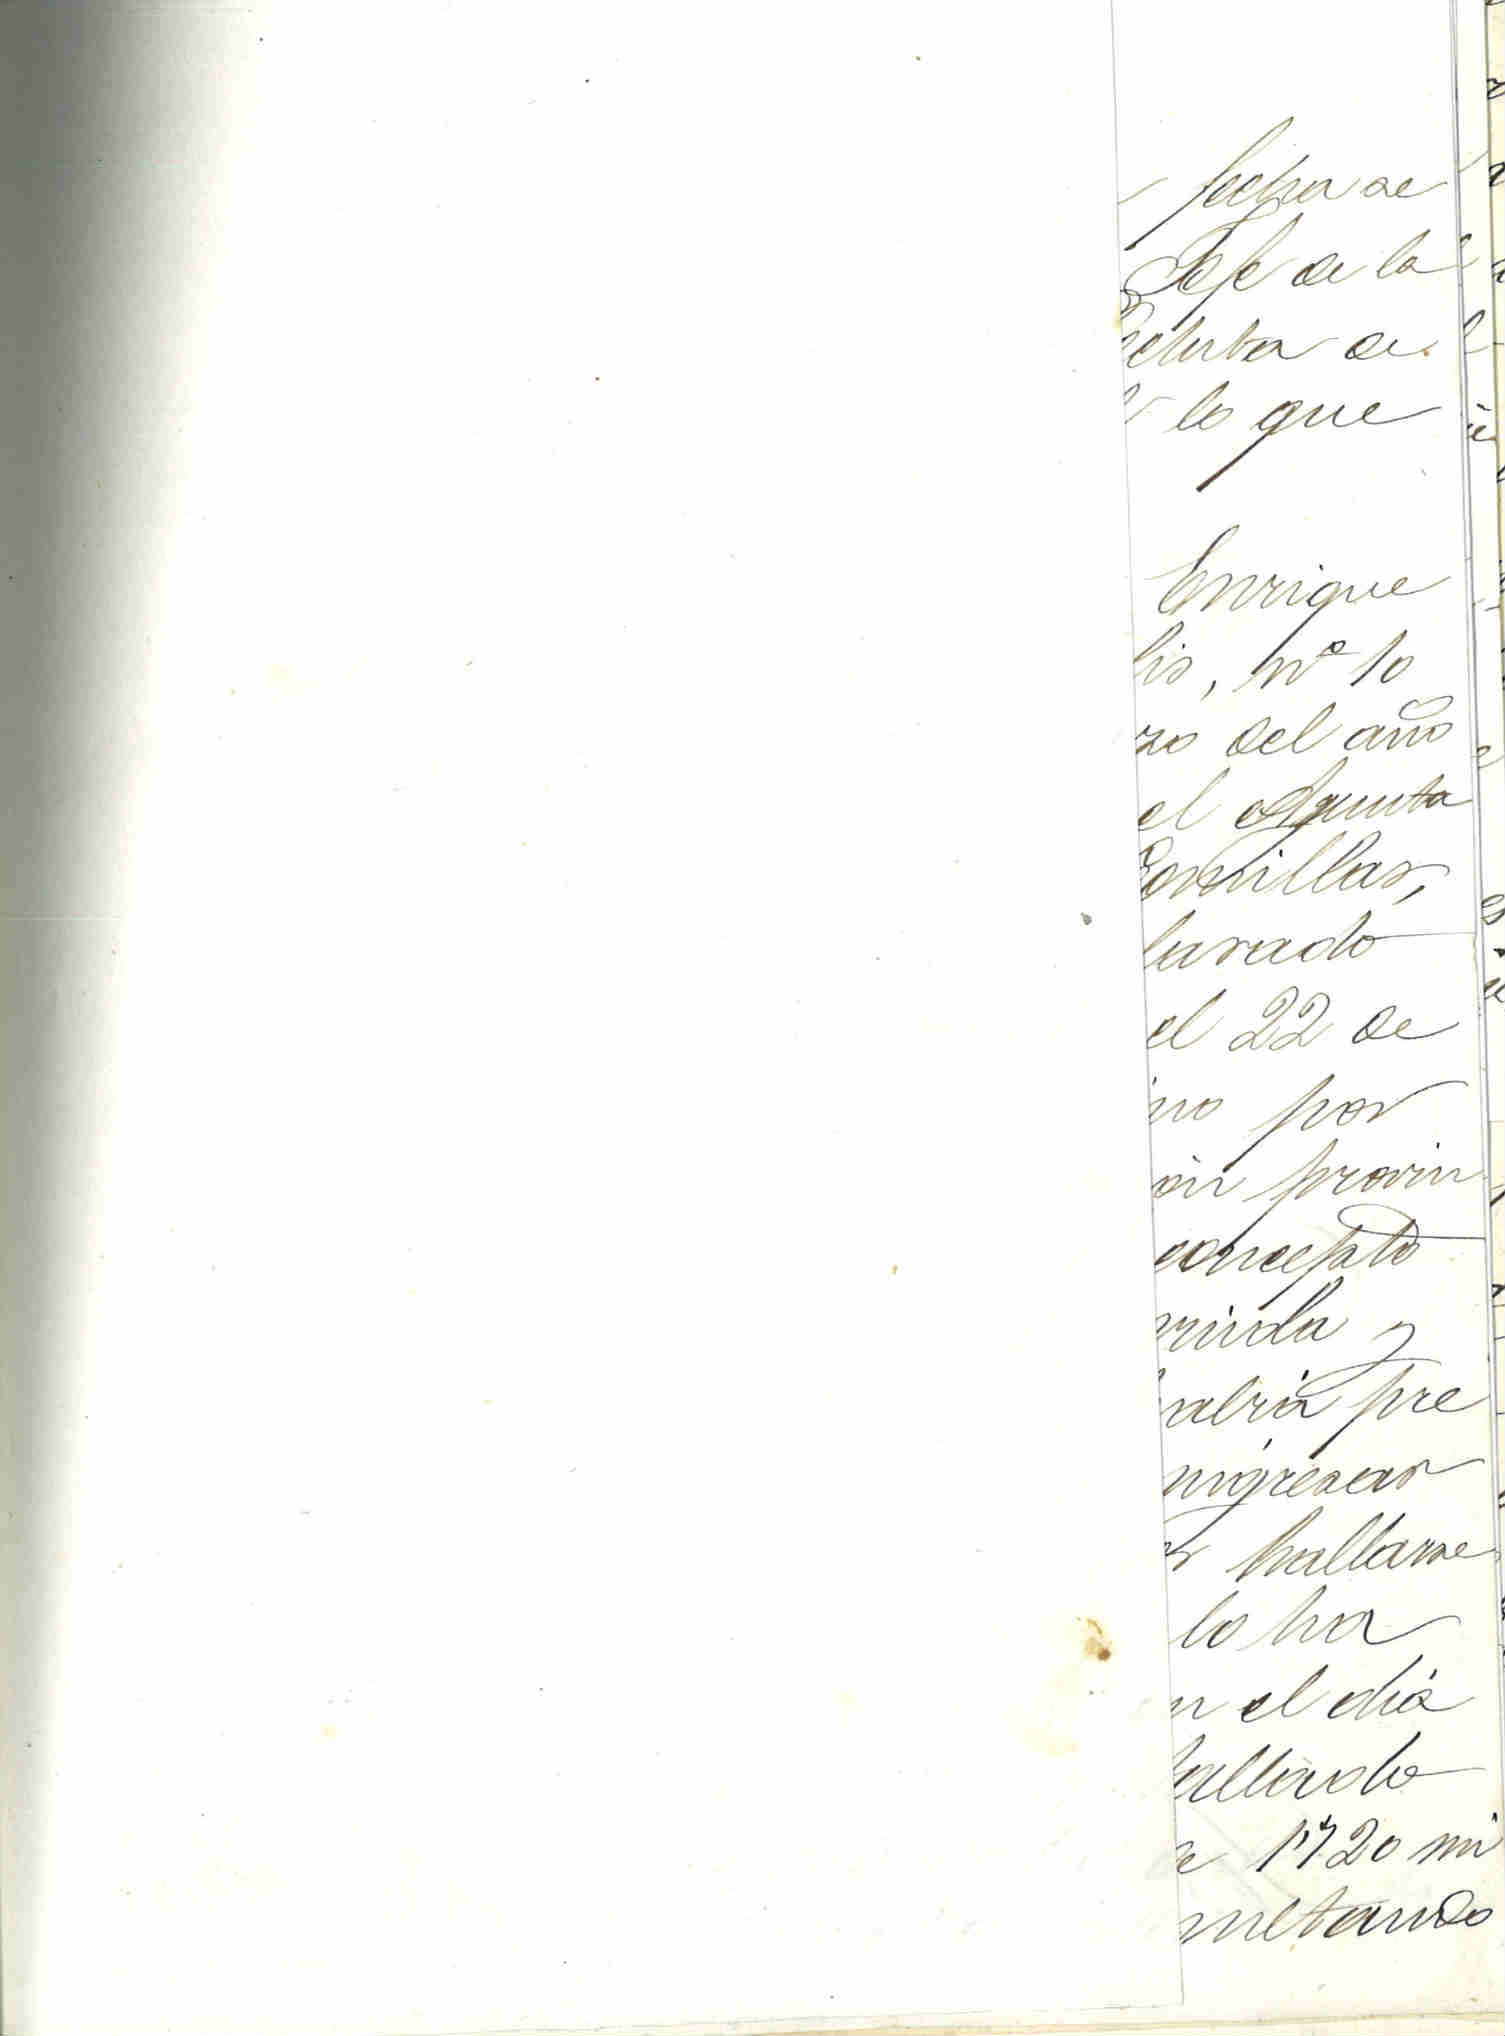 fecha se
Jefe de la
cluta de
lo que
Enrique
lis, nº 10
zo del año
el Ayunta
Comillas,
larado
el 22 de
no por
ón provin
concepto
vinda y
habrá pre
ingresar
hallarse
lo ha
n el día
tallando
e 1'720 mi
metando